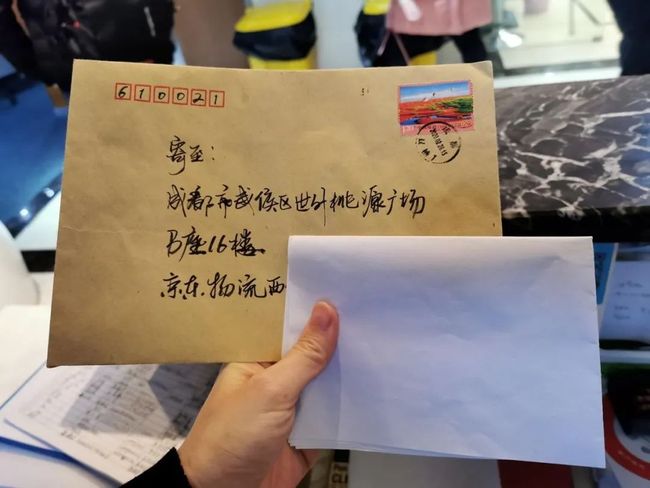 610021
寄至：
成都市武侯区世外桃源广场
B座16楼
京东物流西